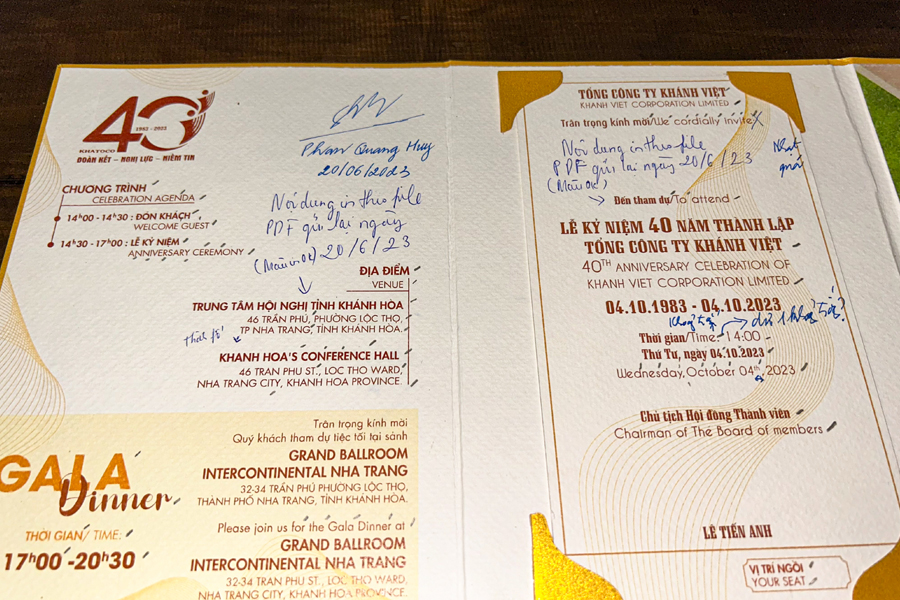 40
1983 - 2023
KHATOCO
ĐOÀN KẾT – NGHỊ LỰC – NIỀM TIN
CHƯƠNG TRÌNH
CELEBRATION AGENDA
14h00 - 14h30 : ĐÓN KHÁCH
WELCOME GUEST
14h30 - 17h00 : LỄ KỶ NIỆM
ANNIVERSARY CEREMONY
Phan Quang Huy
20/06/2023
Nội dung in theo file
PDF gửi lại ngày
(Màu ok) 20/6/23
ĐỊA ĐIỂM
VENUE
TRUNG TÂM HỘI NGHỊ TỈNH KHÁNH HÒA
46 TRẦN PHÚ, PHƯỜNG LỘC THỌ,
TP NHA TRANG, TỈNH KHÁNH HÒA.
KHANH HOA'S CONFERENCE HALL
46 TRAN PHU ST., LOC THO WARD,
NHA TRANG CITY, KHANH HOA PROVINCE.
GALA
Dinner
THỜI GIAN/ TIME:
17h00 -20h30
Trân trọng kính mời
Quý khách tham dự tiệc tối tại sảnh
GRAND BALLROOM
INTERCONTINENTAL NHA TRANG
32-34 TRẦN PHÚ PHƯỜNG LỘC THỌ,
THÀNH PHỐ NHA TRANG, TỈNH KHÁNH HÒA.
Please join us for the Gala Dinner at
GRAND BALLROOM
INTERCONTINENTAL NHA TRANG
32-34 TRAN PHU ST., LOC THO WARD,
NHA TRANG CITY, KHANH HOA PROVINCE.
TỔNG CÔNG TY KHÁNH VIỆT
KHANH VIET CORPORATION LIMITED
Trân trọng kính mời/We cordially invite
Nội dung in theo file
PDF gửi lại ngày 20/6/23
(Màu ok)
Nhạt
quá
Đến tham dự/To attend
LỄ KỶ NIỆM 40 NĂM THÀNH LẬP
TỔNG CÔNG TY KHÁNH VIỆT
40TH ANNIVERSARY CELEBRATION OF
KHANH VIET CORPORATION LIMITED
04.10.1983 - 04.10.2023
Thời gian/Time: 14:00
Thứ Tư, ngày 04.10.2023
Wednesday, October 04th, 2023
Chủ tịch Hội đồng Thành viên
Chairman of The Board of members
LÊ TIẾN ANH
VỊ TRÍ NGỒI
YOUR SEAT